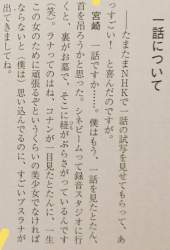 一話について
――たまたまNHKで一話の試写を見せてもらって、あ
っすごい！　と喜んだのですが。
宮崎　一話ですか……。僕はもう、一話を見たとたん、
首を吊ろうかと思った。シネビームって録音スタジオに行
くと、裏がお墓で、そこに紐がぶらさがっているんです
（笑）。ラナってのはね、コナンが一目見たとたんに、一生
この女のために頑張るぞというくらいの美少女でなければ
ならないと（僕は）思い込んでるのに、すごいブスラナが
出てきてしてね。